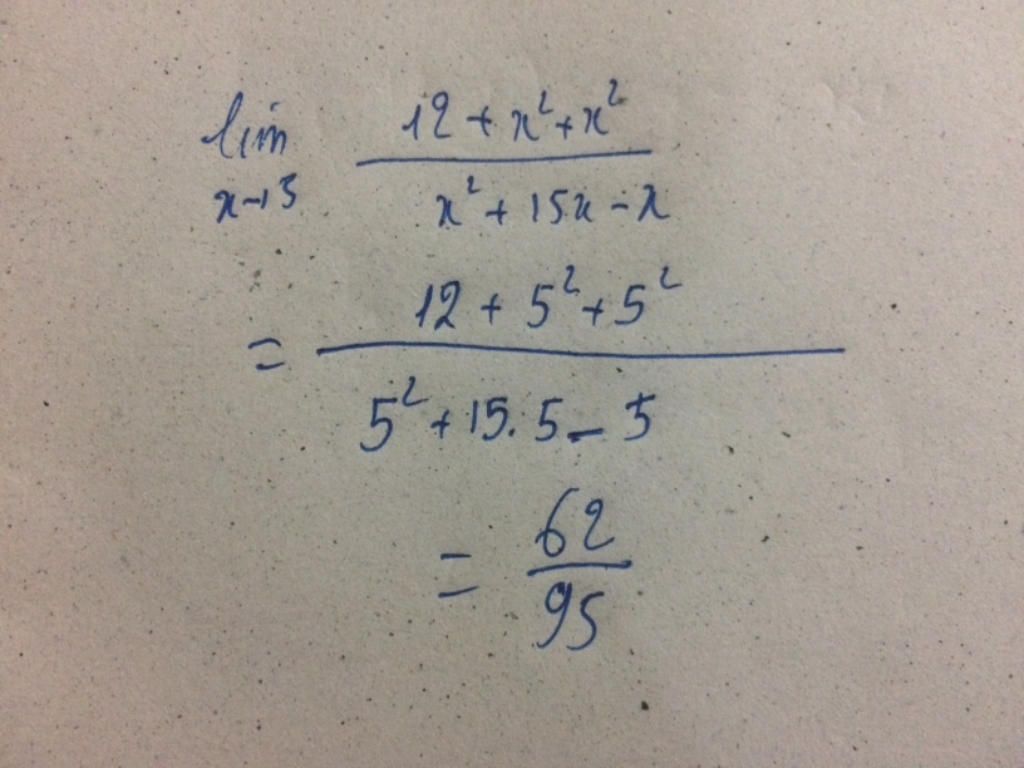 lim 12 + x² + x²
x→5 x² + 15x - x
= 12 + 5² + 5²
5² + 15.5 - 5
= 62
95